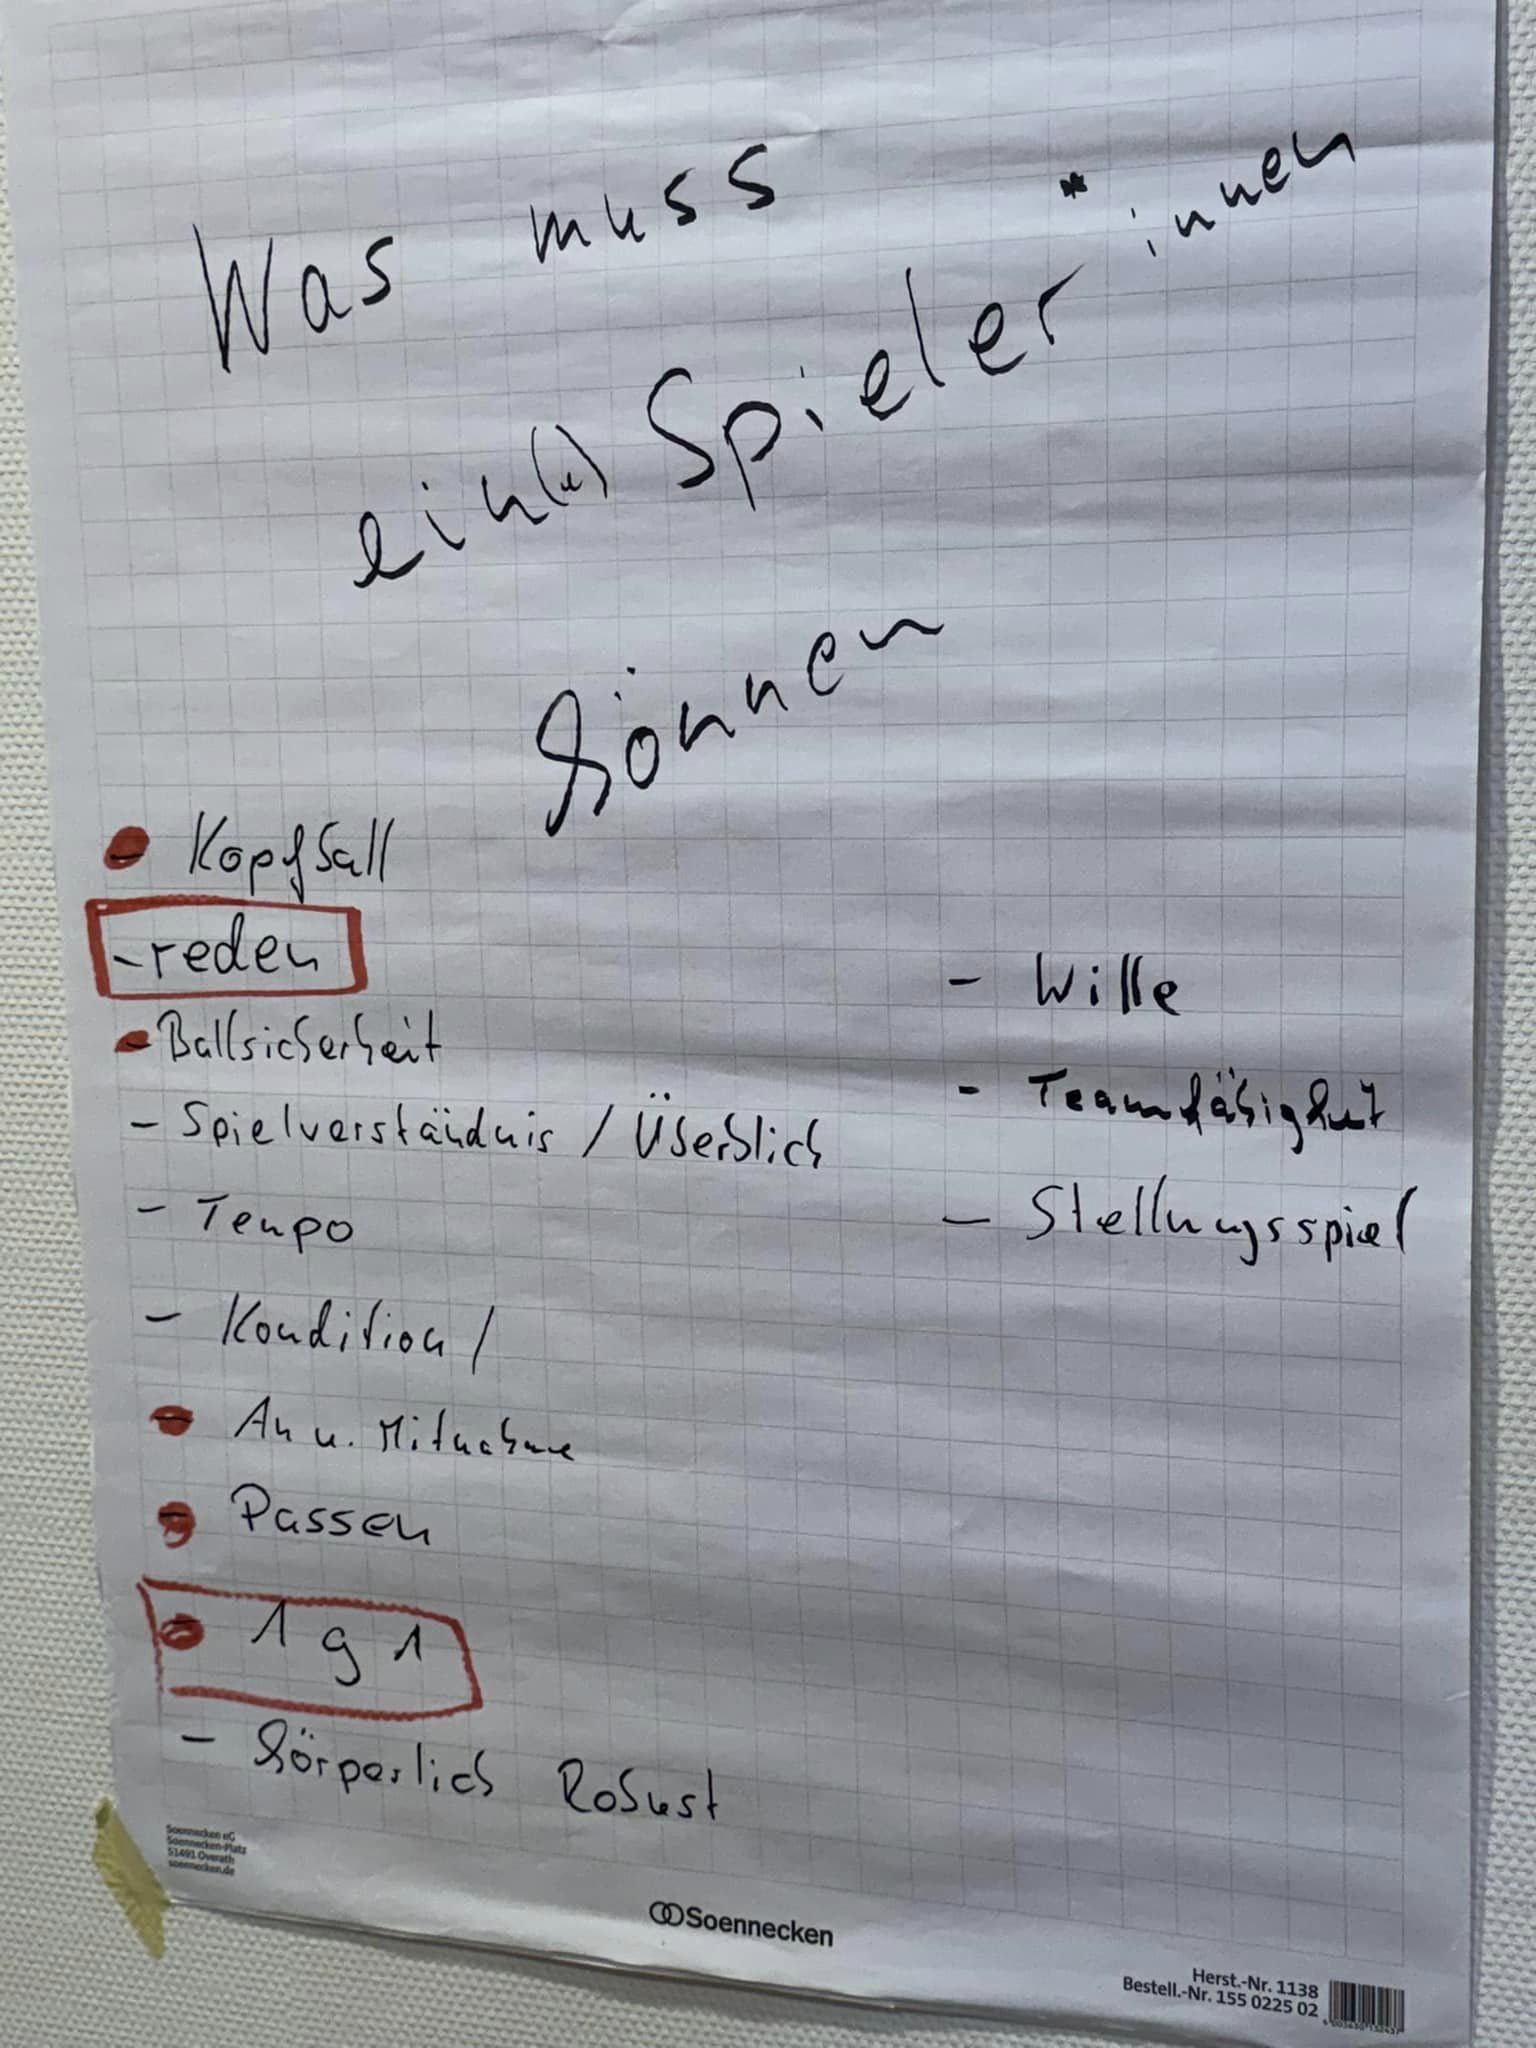 Was muss
ein(e) Spieler*innen
können
Kopfball
- reden
- Ballsicherheit
- Spielverständnis / Überblick
- Tempo
- Kondition /
- An u. Mitnahme
- Passen
- 1 g 1
- körperlich Robust
- Wille
- Teamfähigkeit
- Stellungsspiel
Soennecken eG
Soennecken-Platz
51491 Overath
soennecken.de
Soennecken
Herst.-Nr. 1138
Bestell.-Nr. 155 0225 02